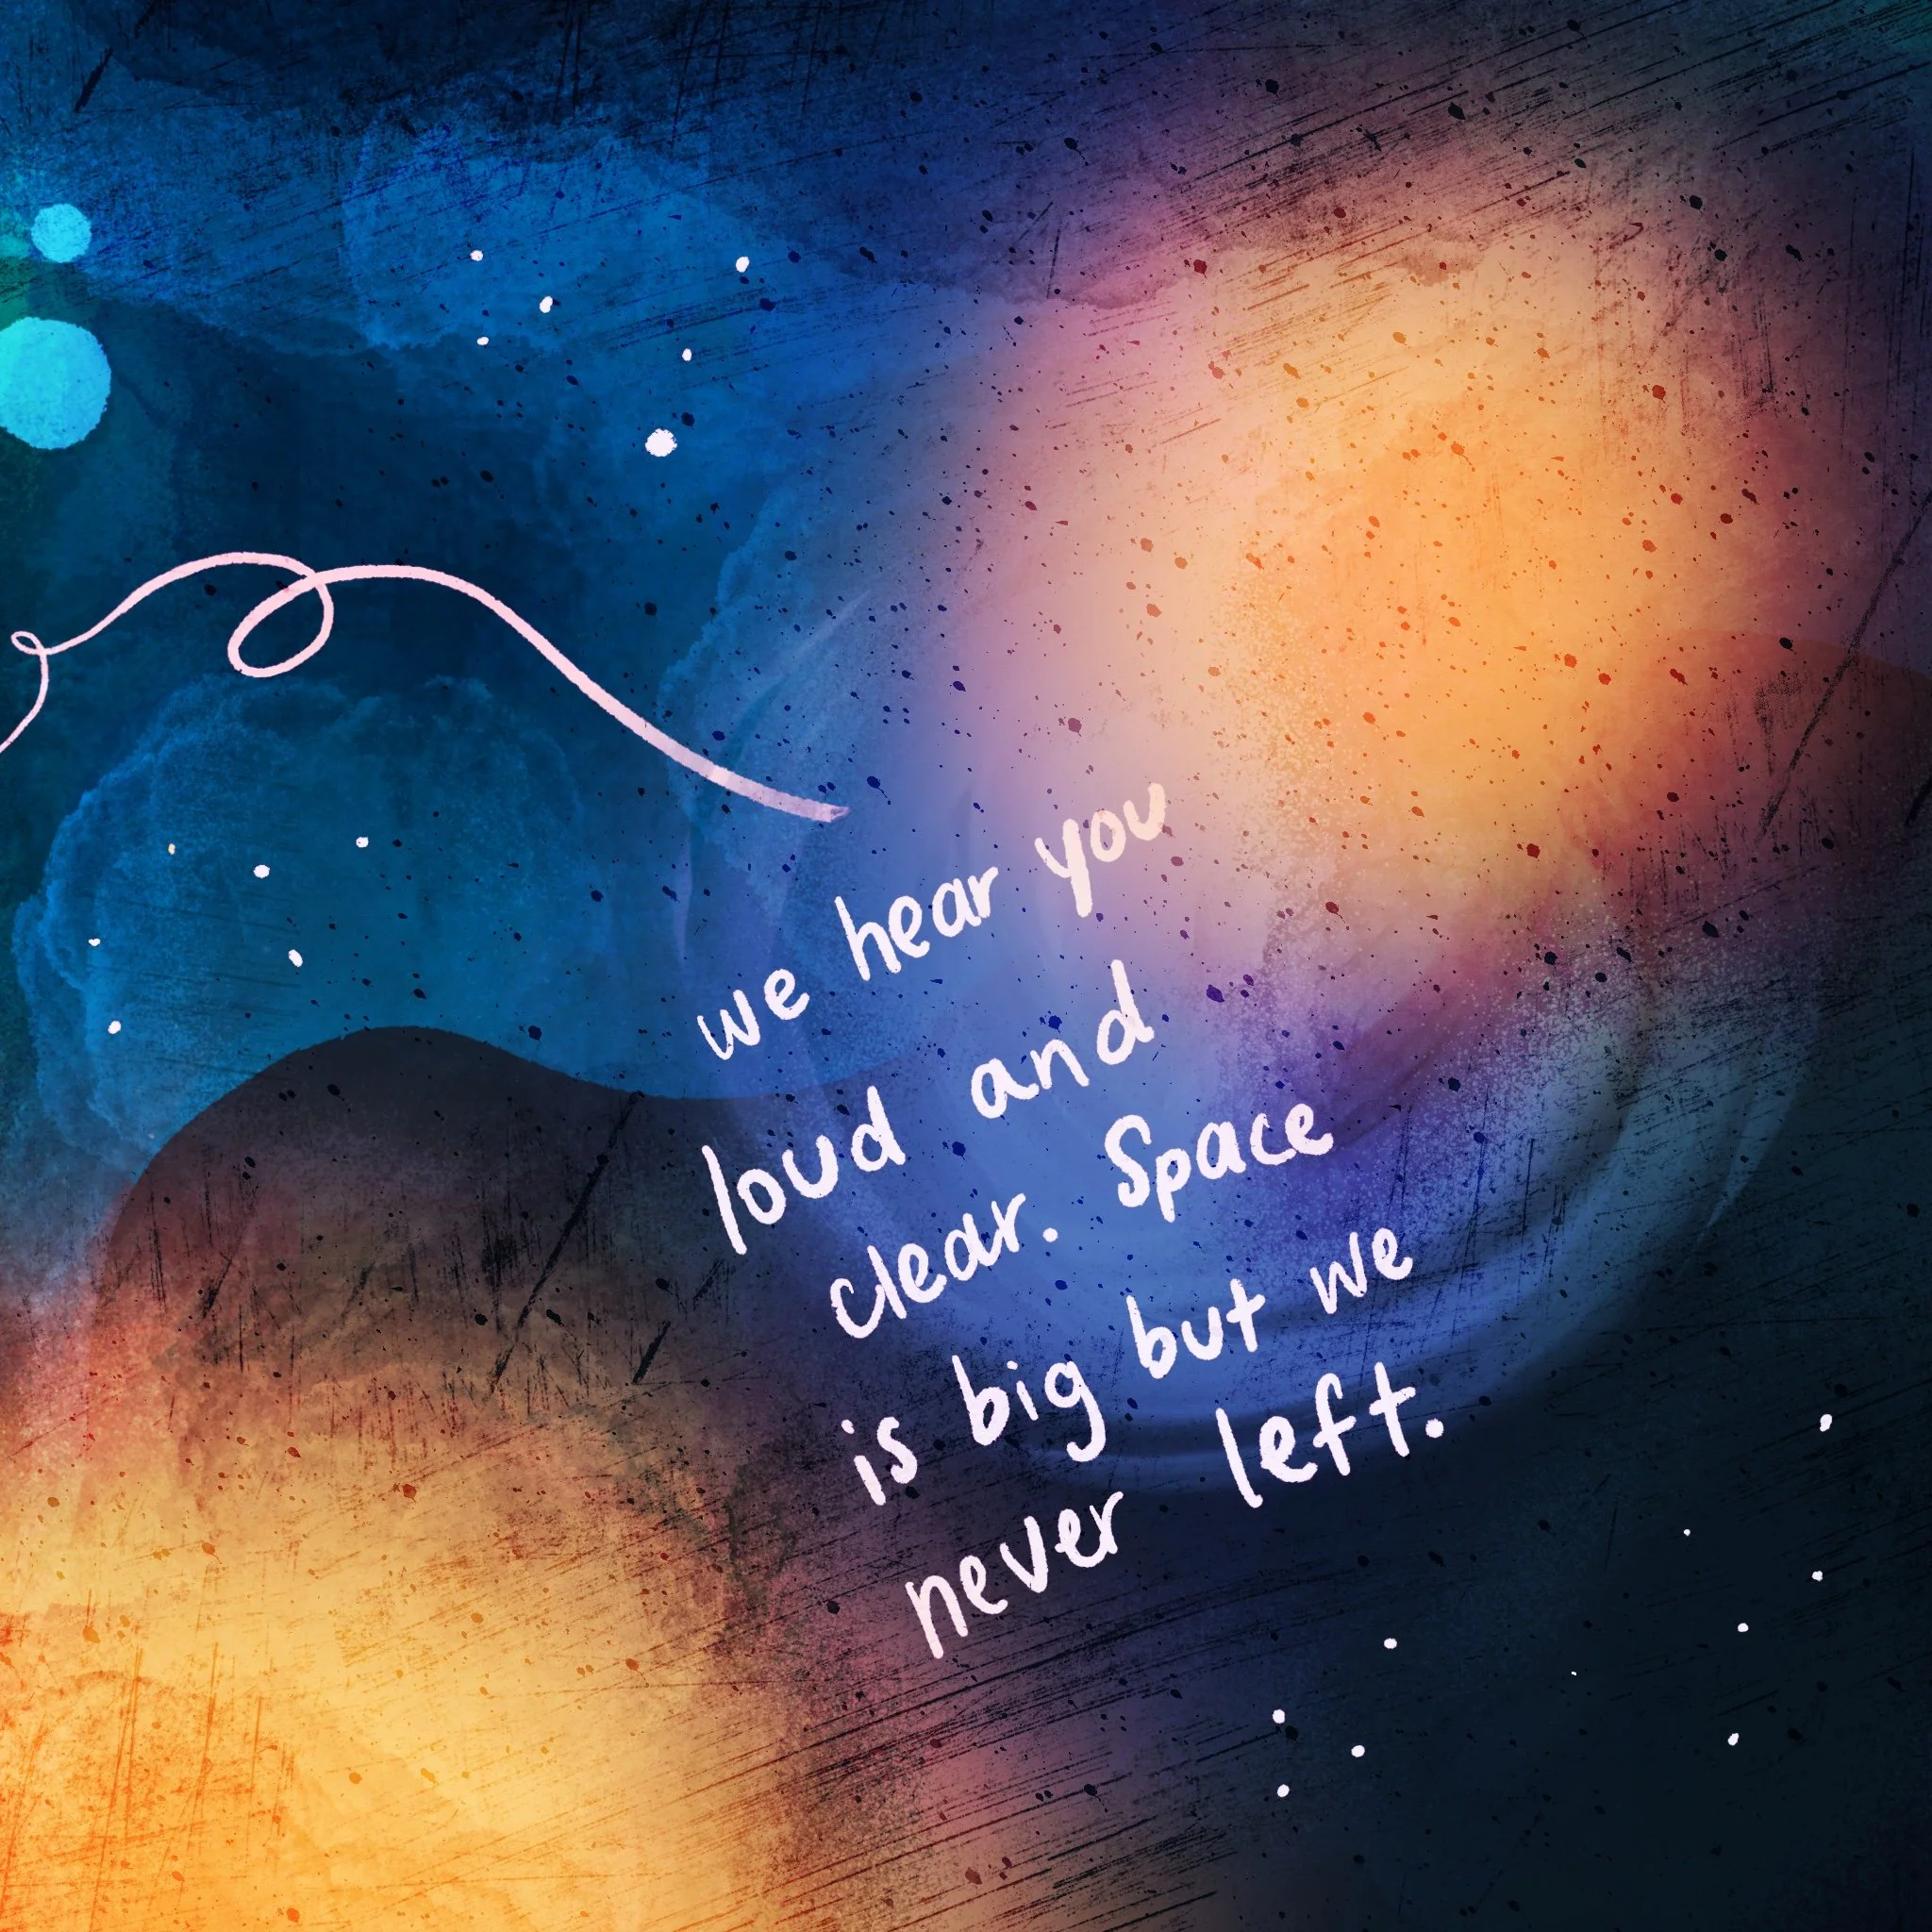 we hear you
loud and
clear. Space
is big but we
never left.